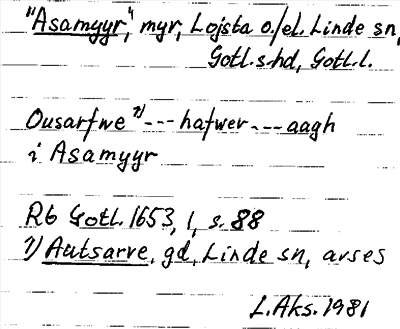 "Asamyyr," myr, Lojsta o./el. Linde sn,
Gotl. s. hd, Gotl. l.
Ousarfwe 1) --- hafwer --- aagh
i Asamyyr
Rb Gotl. 1653, 1, s. 88
1) Autsarve, gd, Linde sn, avses
L. Aks. 1981